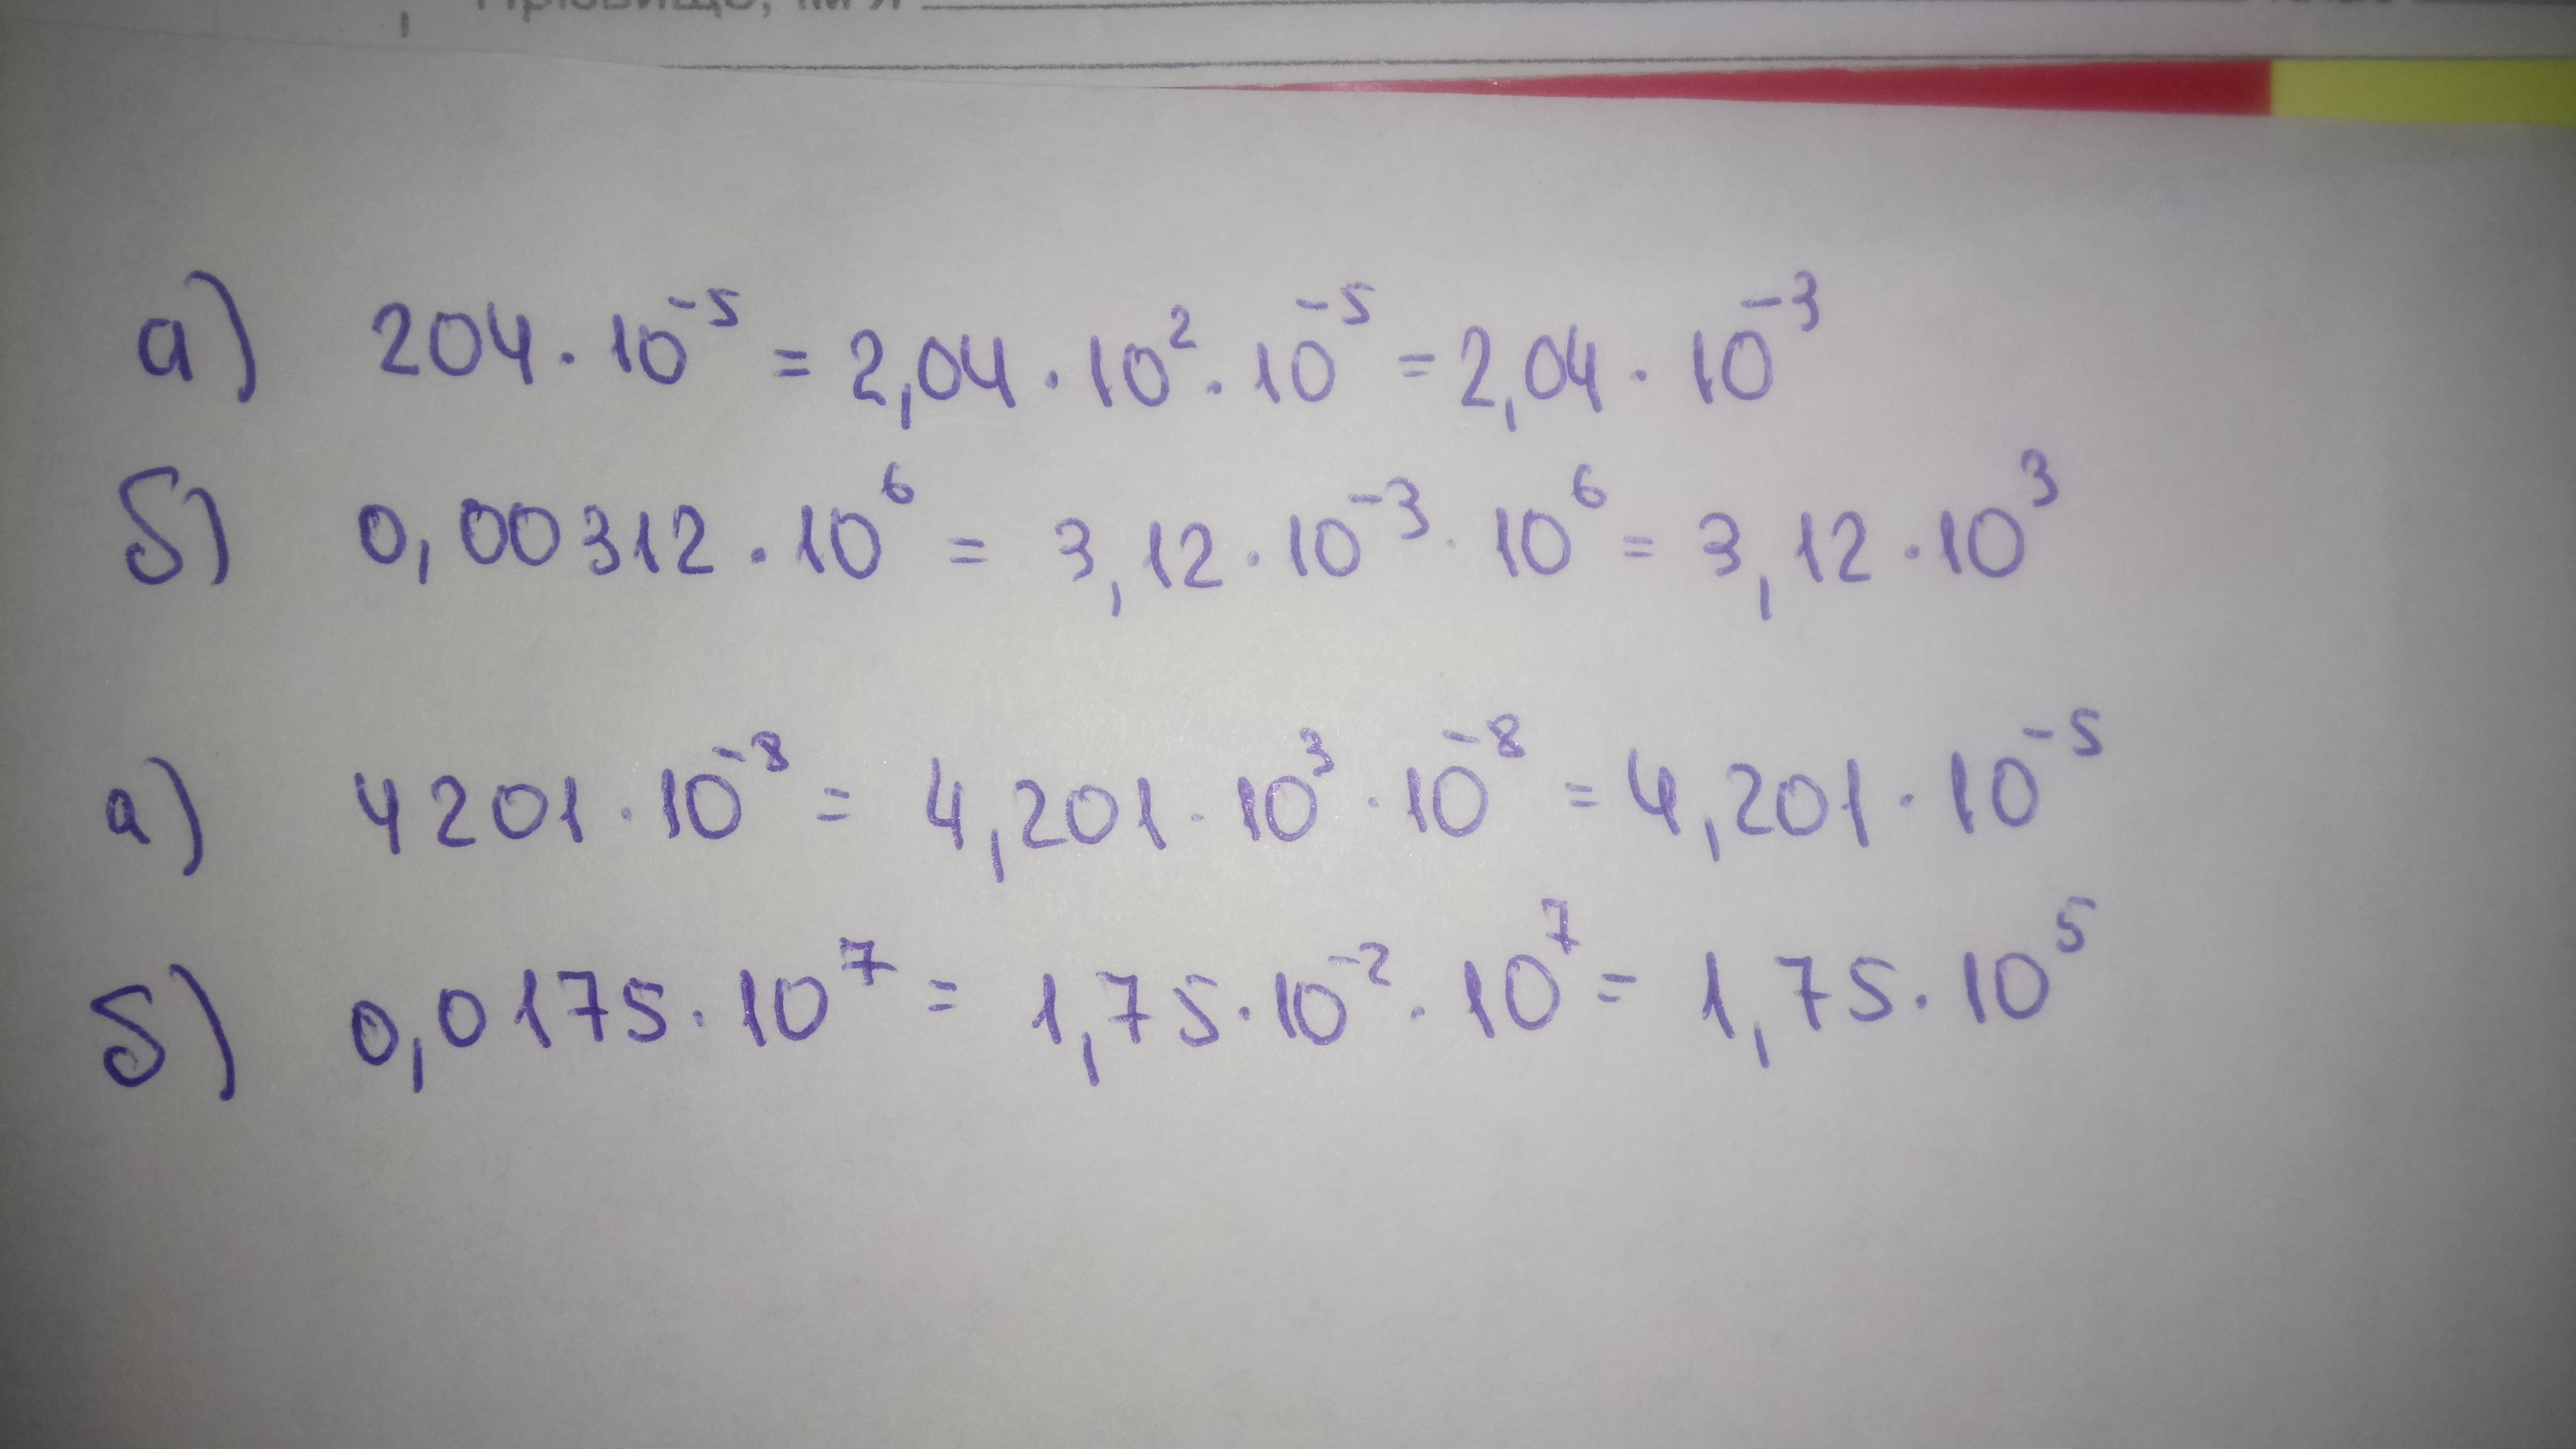 Прізвище, ім'я
а) 204 · 10⁻⁵ = 2,04 · 10² · 10⁻⁵ = 2,04 · 10⁻³
б) 0,00312 · 10⁶ = 3,12 · 10⁻³ · 10⁶ = 3,12 · 10³
а) 4201 · 10⁻⁸ = 4,201 · 10³ · 10⁻⁸ = 4,201 · 10⁻⁵
б) 0,0175 · 10⁷ = 1,75 · 10⁻² · 10⁷ = 1,75 · 10⁵